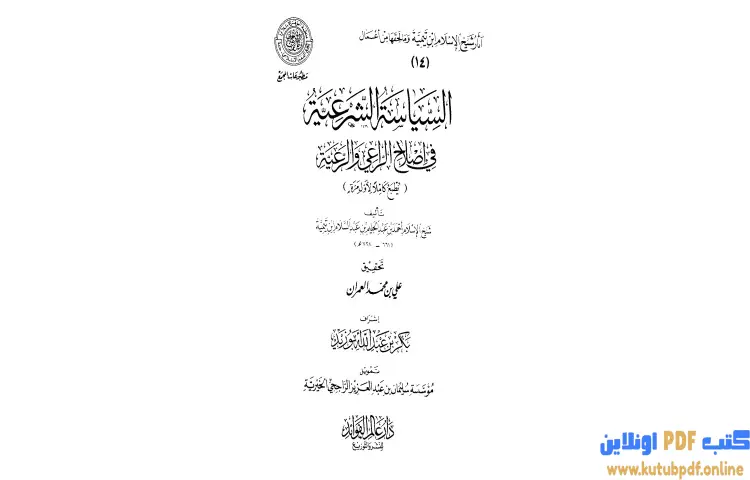 آثار شيخ الإسلام ابن تيمية وما لحقها من أعمال
(١٤)
مطبوعات المجمع
السِّيَاسَةُ الشَّرْعِيَّةُ
في إصلاح الراعي والرعية
( يُطبع كاملاً لأول مرة )
تأليف
شيخ الإسلام أحمد بن عبد الحليم بن عبد السلام ابن تيمية
(٦٦١ - ٧٢٨ هـ)
تحقيق
علي بن محمد العمران
إشراف
بكر بن عبد الله أبو زيد
تمويل
مؤسسة سليمان بن عبد العزيز الراجحي الخيرية
دار عالم الفوائد
للنشر والتوزيع
كتب PDF اونلاين
www.kutubpdf.online